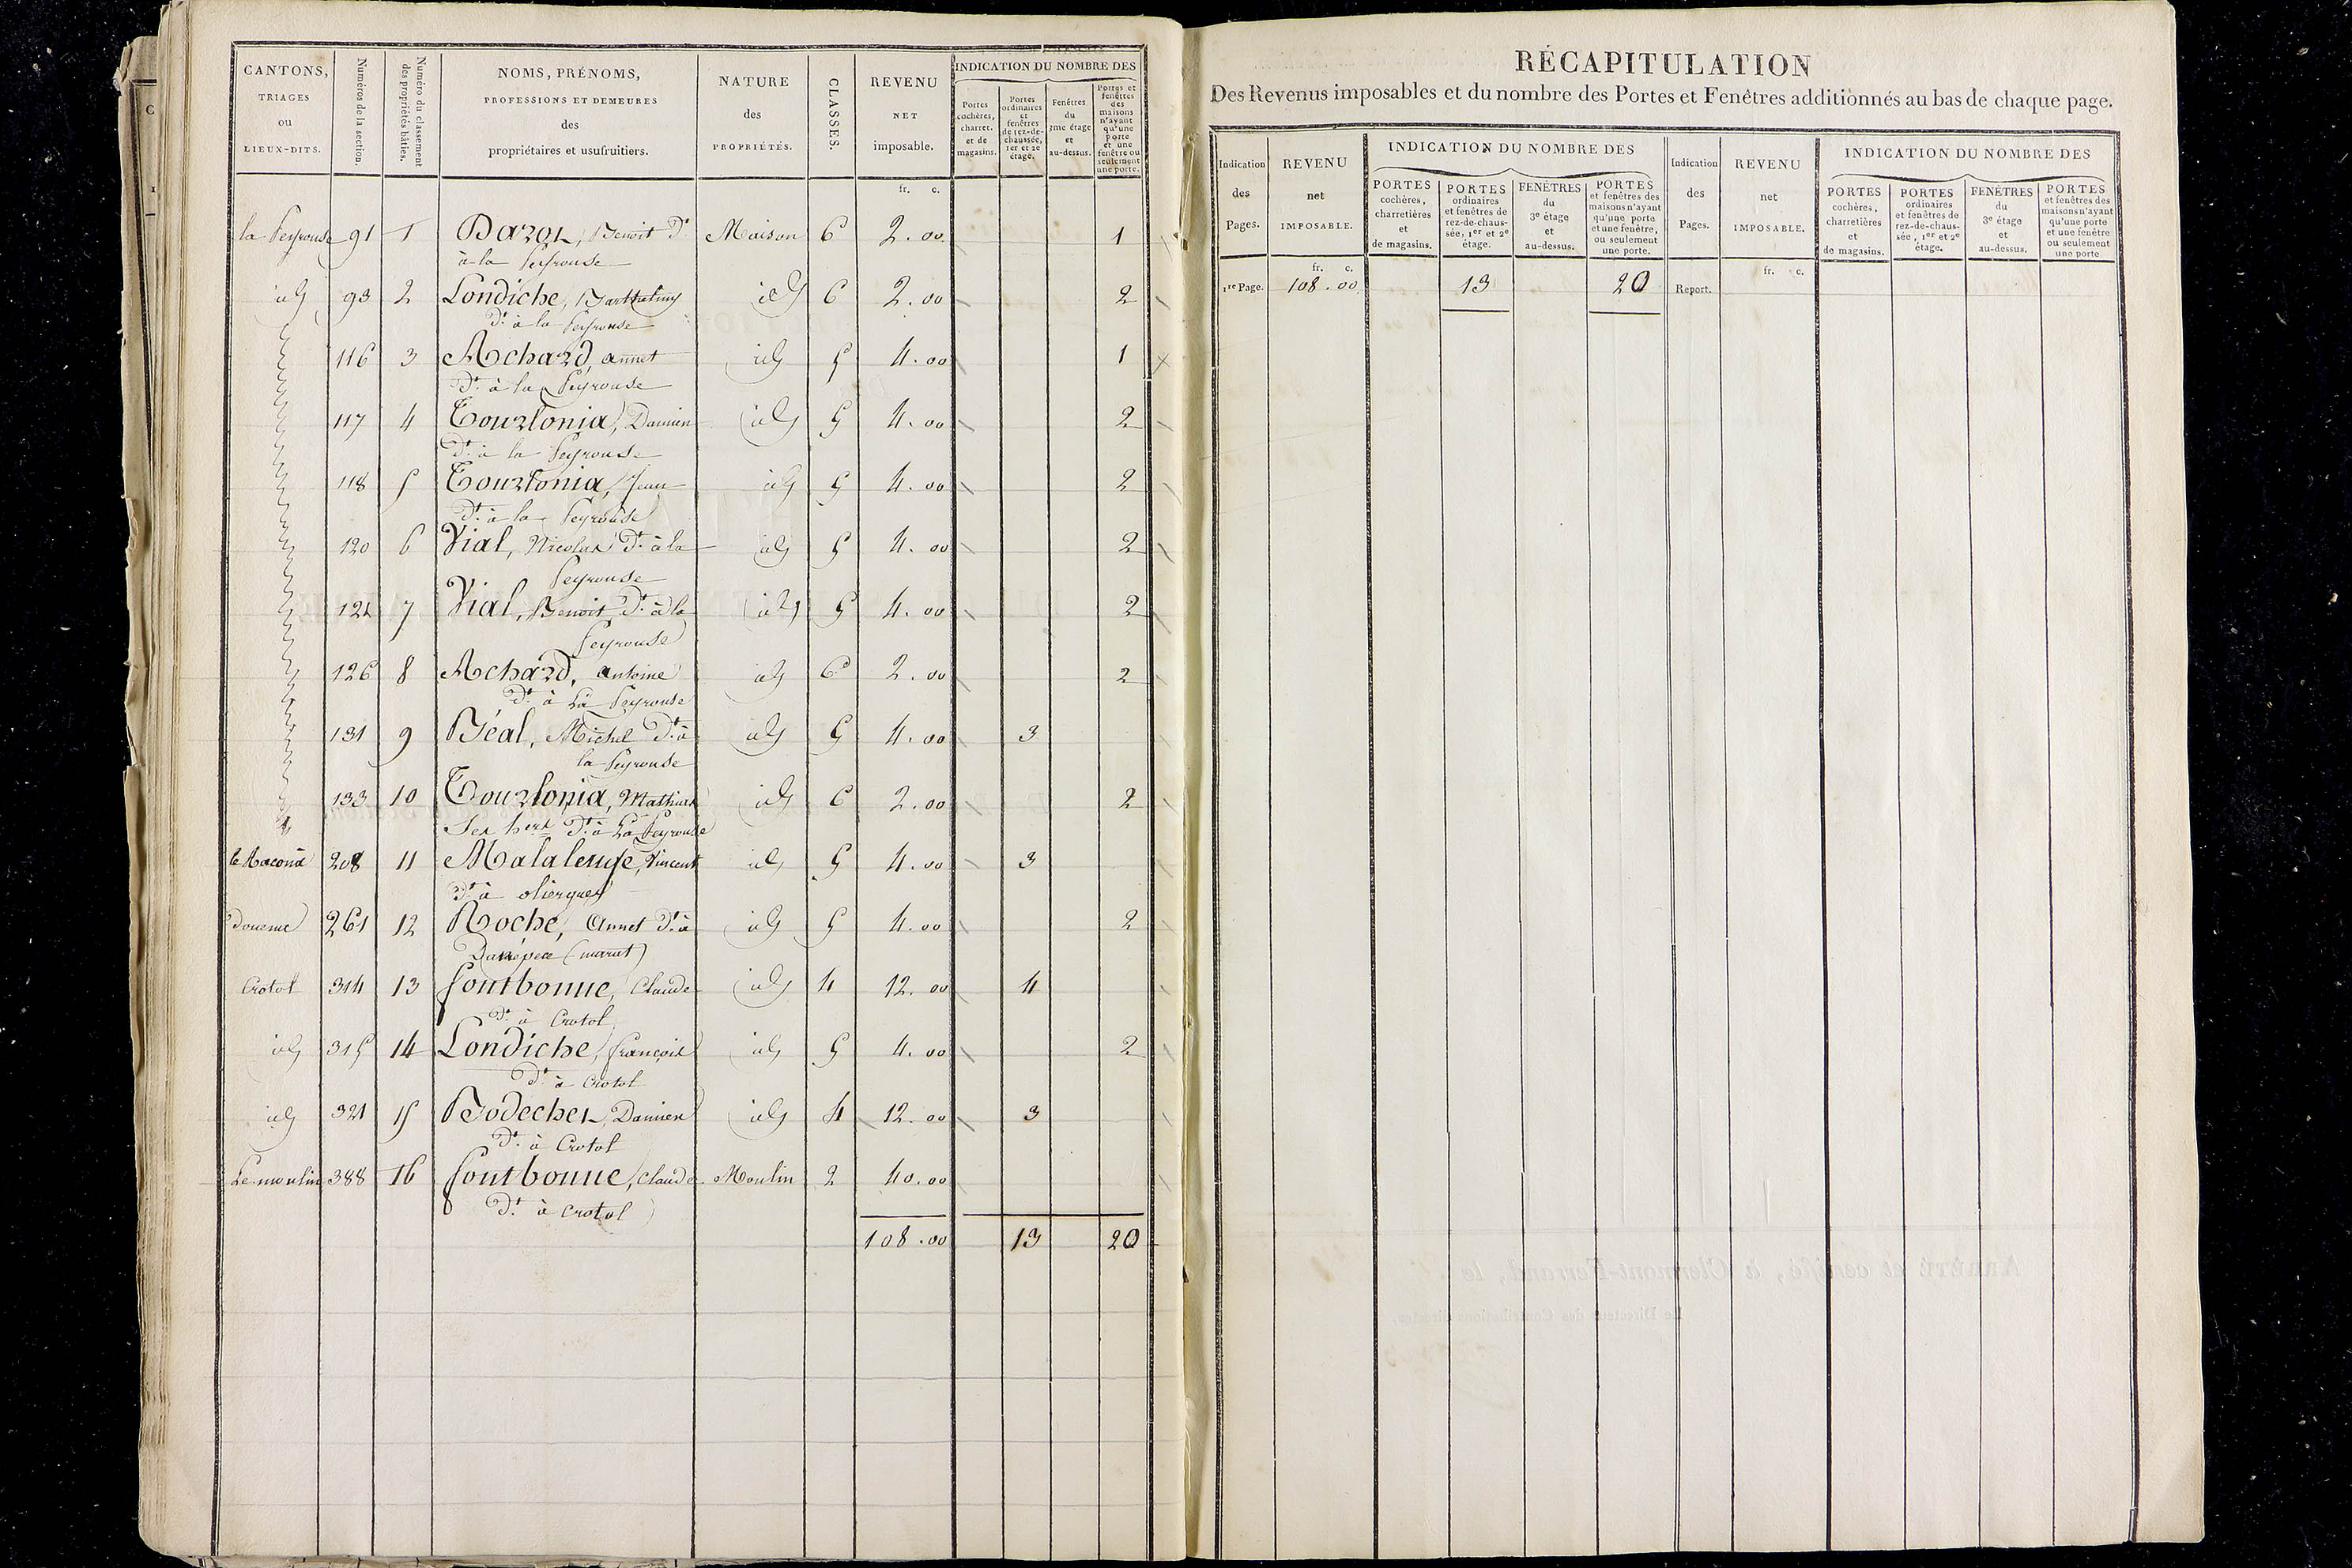 CANTONS,
TRIAGES
ou
LIEUX-DITS.
Numéros de la section.
Numéro du classement
des propriétés bâties.
NOMS, PRÉNOMS,
PROFESSIONS ET DEMEURES
des
propriétaires et usufruitiers.
NATURE
des
PROPRIÉTÉS.
CLASSES.
REVENU
NET
imposable.
INDICATION DU NOMBRE DES
Portes
cochères,
charret.
et de
magasins.
Portes
ordinaires
et
fenêtres
de rez-de-
chaussée,
1er et 2e
étage.
Fenêtres
du
3me étage
et
au-dessus.
Portes et
fenêtres
des
maisons
n'ayant
qu'une
porte
et une
fenêtre ou
seulement
une porte.
fr. c.
la Peyrouse 91 1 Benoit Dt Maison 6 2.00 1
à la Peyrouse
id 93 2 Londiche, Barthelmy id 6 2.00 2
Dt à la Peyrouse
116 3 Achard, annet id 5 4.00 1
Dt à la Peyrouse
117 4 Tourlonia, Damien id 5 4.00 2
Dt à la Peyrouse
118 5 Tourlonia, Jean id 5 4.00 2
Dt à la Peyrouse
120 6 Vial, Nicolas Dt à la id 5 4.00 2
Peyrouse
121 7 Vial, Benoit Dt à la id 5 4.00 2
Peyrouse
126 8 Achard, Antoine id 6 2.00 2
Dt à La Peyrouse
131 9 Béal, Michel Dt à id 5 4.00 3
la Peyrouse
133 10 Tourlonia, Mathieu id 6 2.00 2
Ses hers Dt à La Peyrouse
208 11 Vincent id 5 4.00 3
Dt à olièrgues
261 12 Roche, Annet Dt à id 5 4.00 2
(marat)
Crotol 314 13 fontbonne, Claude id 4 12.00 4
Dt à Crotol
id 315 14 Londiche, françois id 5 4.00 2
Dt à Crotol
id 321 15 Damien id 4 12.00 3
Dt à Crotol
Le moulin 388 16 fontbonne, Claude Moulin 2 40.00
Dt à Crotol
108.00 13 20
RÉCAPITULATION
Des Revenus imposables et du nombre des Portes et Fenêtres additionnés au bas de chaque page.
Indication
des
Pages.
REVENU
net
IMPOSABLE.
INDICATION DU NOMBRE DES
PORTES
cochères,
charretières
et
de magasins.
PORTES
ordinaires
et fenêtres de
rez-de-chaus-
sée, 1er et 2e
étage.
FENÊTRES
du
3e étage
et
au-dessus.
PORTES
et fenêtres des
maisons n'ayant
qu'une porte
et une fenêtre,
ou seulement
une porte.
Indication
des
Pages.
REVENU
net
IMPOSABLE.
INDICATION DU NOMBRE DES
PORTES
cochères,
charretières
et
de magasins.
PORTES
ordinaires
et fenêtres de
rez-de-chaus-
sée, 1er et 2e
étage.
FENÊTRES
du
3e étage
et
au-dessus.
PORTES
et fenêtres des
maisons n'ayant
qu'une porte
et une fenêtre
ou seulement
une porte
fr. c. fr. c.
1re Page. 108.00 13 20 Report.